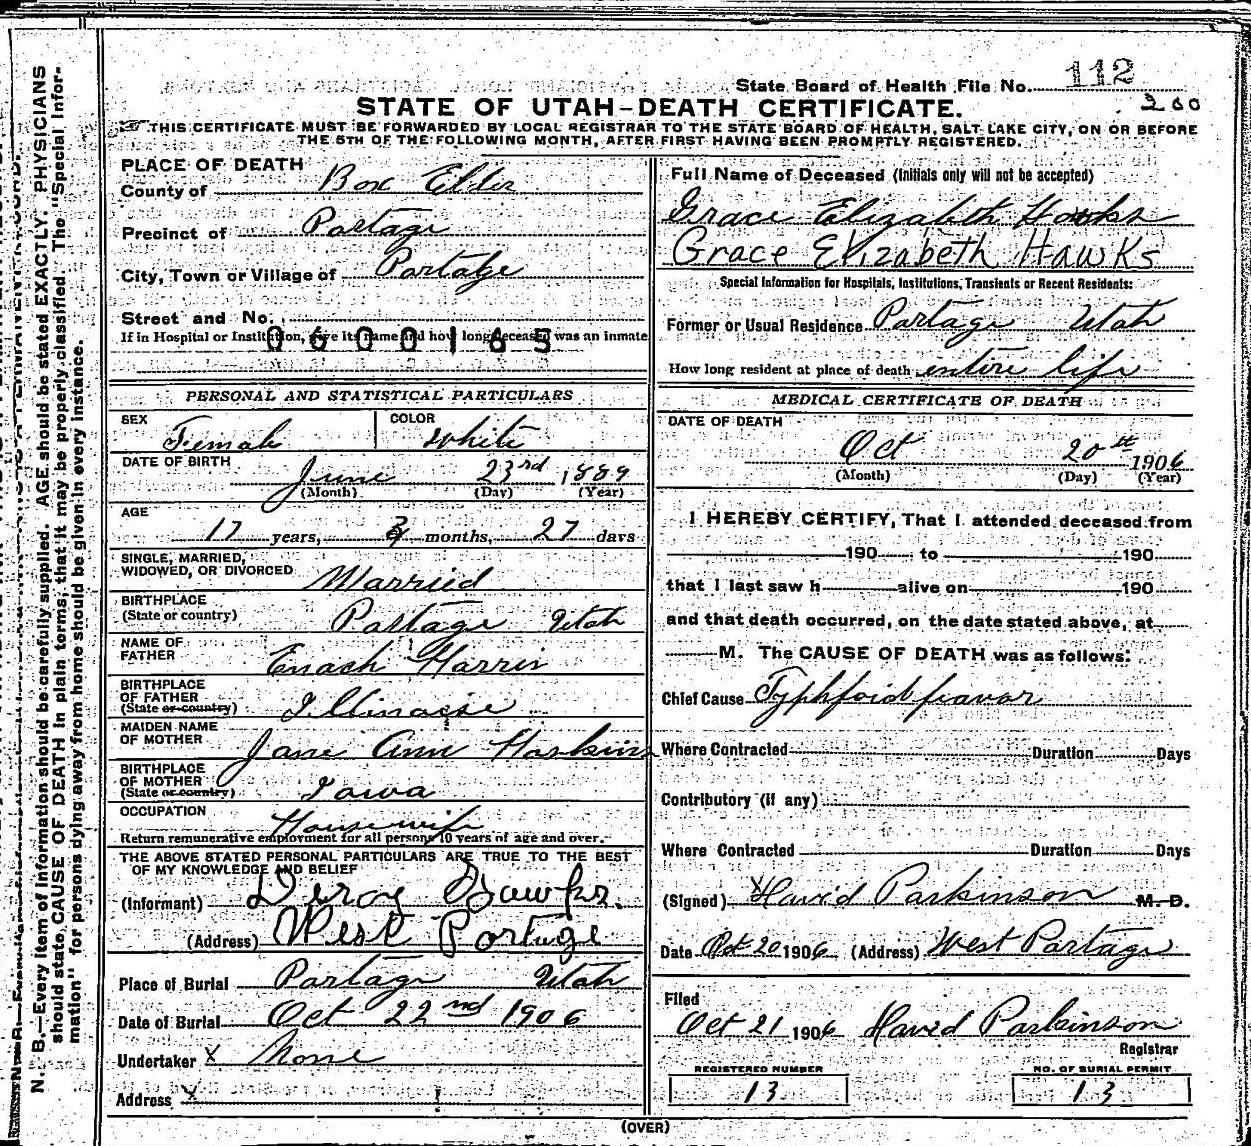 State Board of Health File No. 112
260
STATE OF UTAH—DEATH CERTIFICATE.
THIS CERTIFICATE MUST BE FORWARDED BY LOCAL REGISTRAR TO THE STATE BOARD OF HEALTH, SALT LAKE CITY, ON OR BEFORE
THE 5TH OF THE FOLLOWING MONTH, AFTER FIRST HAVING BEEN PROMPTLY REGISTERED.
PLACE OF DEATH
County of Box Elder
Precinct of Portage
City, Town or Village of Portage
Street and No.
If in Hospital or Institution, give its name and how long deceased was an inmate
0600165
PERSONAL AND STATISTICAL PARTICULARS
SEX Female COLOR White
DATE OF BIRTH June 23rd 1889
(Month) (Day) (Year)
AGE
17 years, 3 months, 27 days
SINGLE, MARRIED,
WIDOWED, OR DIVORCED Married
BIRTHPLACE
(State or country) Portage Utah
NAME OF
FATHER Enoch Harris
BIRTHPLACE
OF FATHER
(State or country) Illinoise
MAIDEN NAME
OF MOTHER Jane Ann Hoskins
BIRTHPLACE
OF MOTHER
(State or country) Iowa
OCCUPATION Housewife
Return remunerative employment for all persons 10 years of age and over.
THE ABOVE STATED PERSONAL PARTICULARS ARE TRUE TO THE BEST
OF MY KNOWLEDGE AND BELIEF
(Informant)
(Address) West Portage
Place of Burial Portage Utah
Date of Burial Oct 22nd 1906
Undertaker x None
Address x
Full Name of Deceased (Initials only will not be accepted)
Grace Elizabeth Hawks
Grace Elizabeth Hawks
Special Information for Hospitals, Institutions, Transients or Recent Residents:
Former or Usual Residence Portage Utah
How long resident at place of death entire life
MEDICAL CERTIFICATE OF DEATH
DATE OF DEATH
Oct 20th 1906
(Month) (Day) (Year)
I HEREBY CERTIFY, That I attended deceased from
190 to 190
that I last saw h alive on 190
and that death occurred, on the date stated above, at
M. The CAUSE OF DEATH was as follows:
Chief Cause Typhfoid feavor
Where Contracted Duration Days
Contributory (if any)
Where Contracted Duration Days
(Signed) x David Parkinson M. D.
Date Oct 20 1906 (Address) West Portage
Filed
Oct 21 1906 David Parkinson
Registrar
REGISTERED NUMBER NO. OF BURIAL PERMIT
13 13
(OVER)
N. B.—Every item of information should be carefully supplied. AGE should be stated EXACTLY. PHYSICIANS
should state CAUSE OF DEATH in plain terms, that it may be properly classified. The "Special Infor-
mation" for persons dying away from home should be given in every instance.